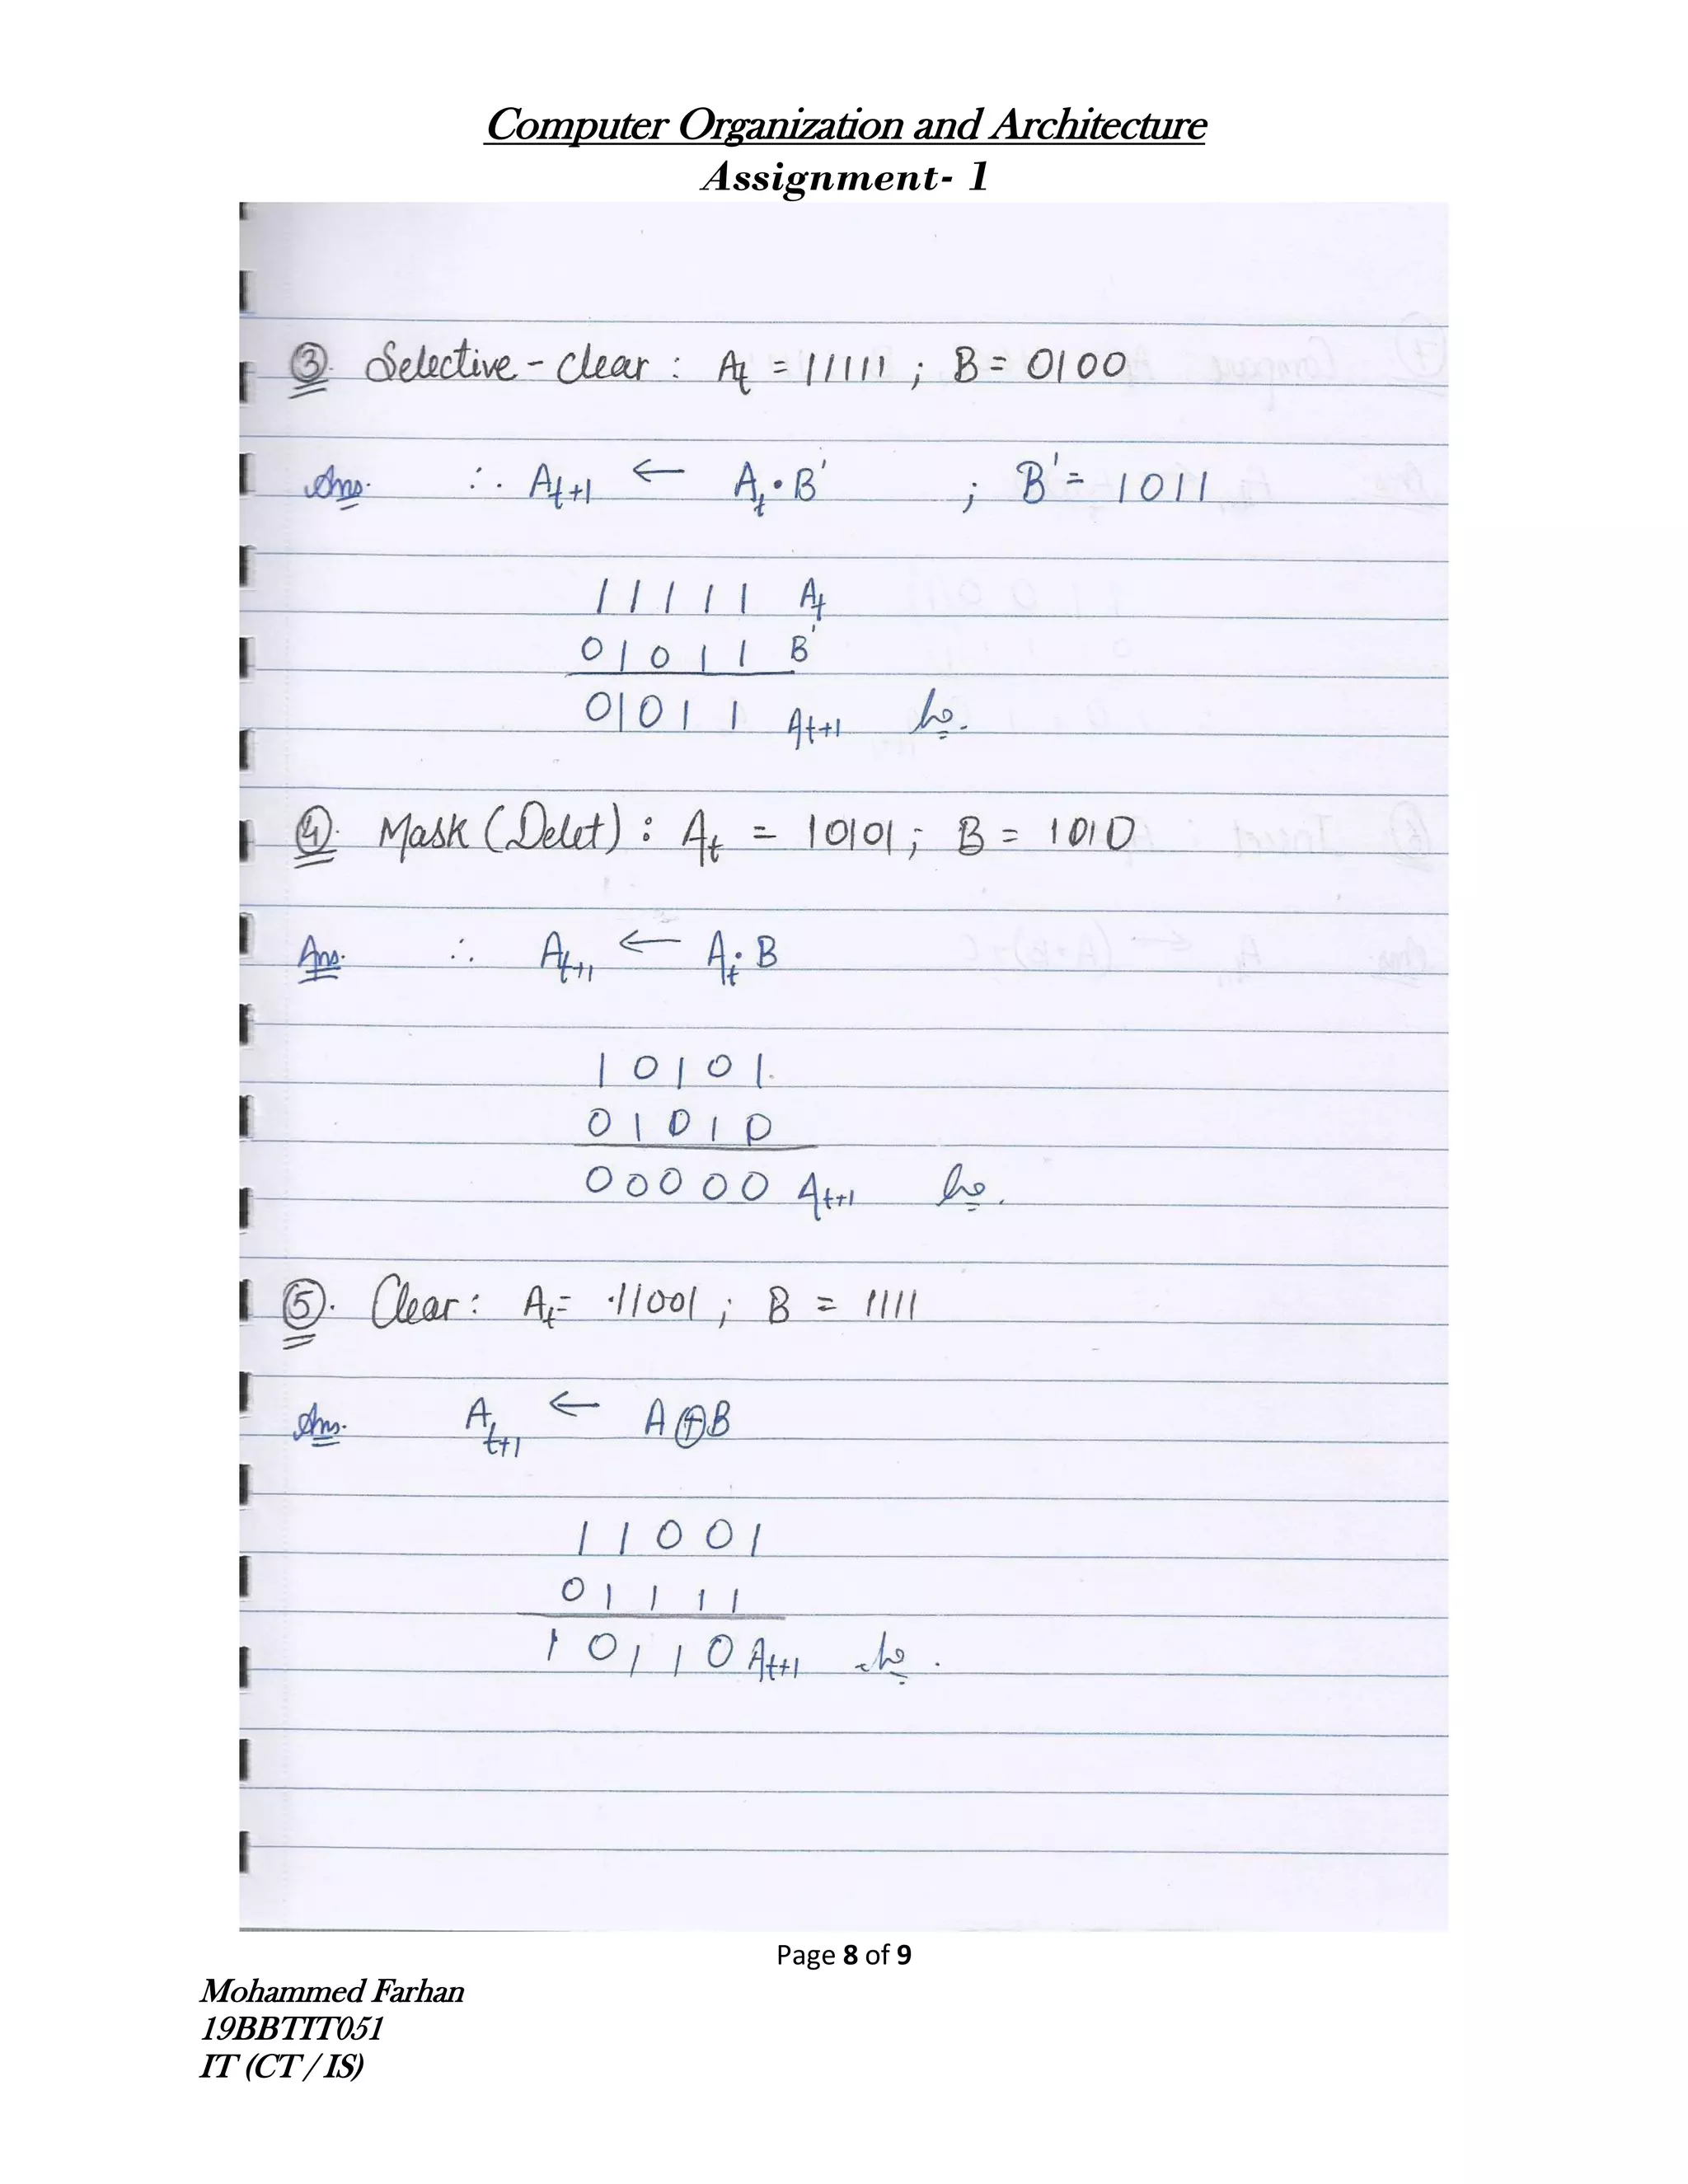 Computer Organization and Architecture
Assignment- 1
③ Selective - clear : At = 11111 ; B = 0100
Ans. ∴ At+1 ← At • B' ; B' = 1011
1 1 1 1 1 At
0 1 0 1 1 B'
0 1 0 1 1 At+1
④. Mask (Delet) : At = 10101 ; B = 1010
Ans. ∴ At+1 ← At • B
1 0 1 0 1.
0 1 0 1 0
0 0 0 0 0 At+1
⑤. Clear : At = 11001 ; B = 1111
Ans. At+1 ← A ⊕ B
1 1 0 0 1
0 1 1 1 1
1 0 1 1 0 At+1
Page 8 of 9
Mohammed Farhan
19BBTIT051
IT (CT / IS)